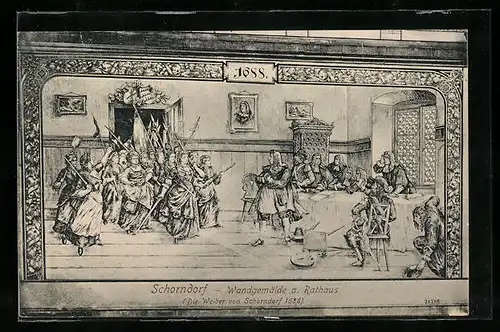 1688.
Schorndorf – Wandgemälde a. Rathaus
(Die Weiber von Schorndorf 1688)